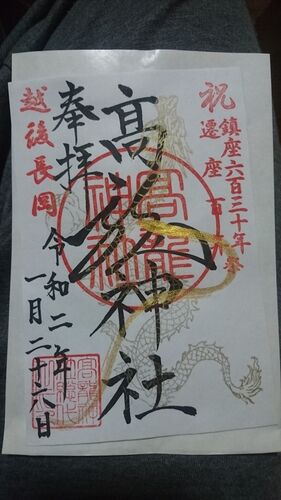 祝
鎮座六百三十年祭
遷座 百
高龍神社
高龍神社
奉拝
越後長岡
令和二年
一月二十六日